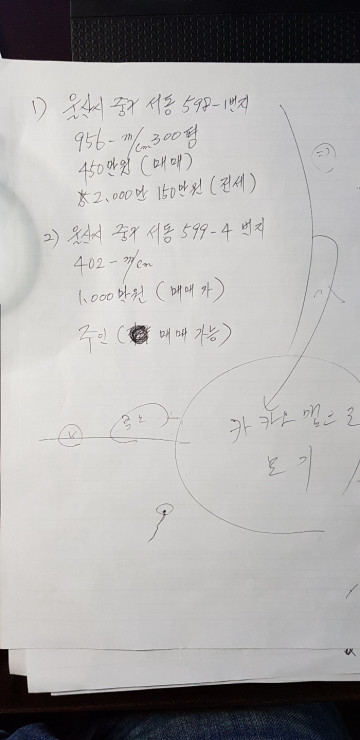 1) 울산시 중구 서동 598-1번지
956-㎡/cm 300평
450만원 (매매)
2,000만 150만원 (전세)
2) 울산시 중구 서동 599-4 번지
402-㎡/cm
1,000만원 (매매가)
주인 ( 매매 가능)
카카오 맵으로
보기